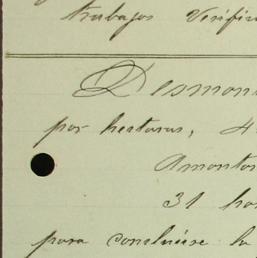 trabajos verifi
Desmon
por hectaras, 4
Amonto
31 ho
para concluirse la